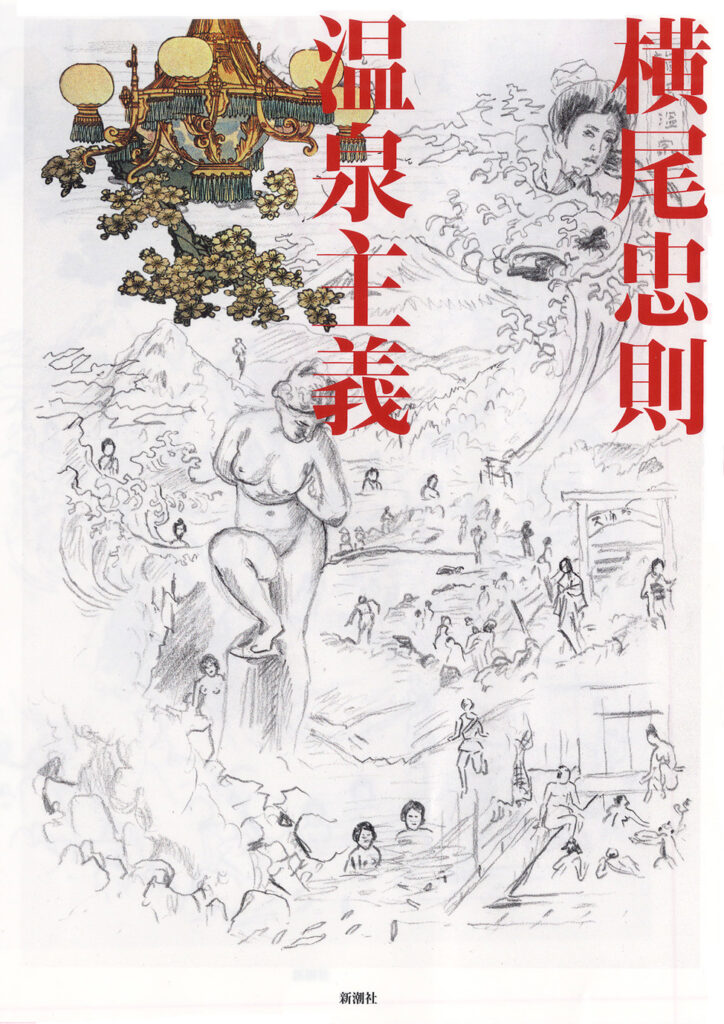 横尾忠則
温泉主義
新潮社